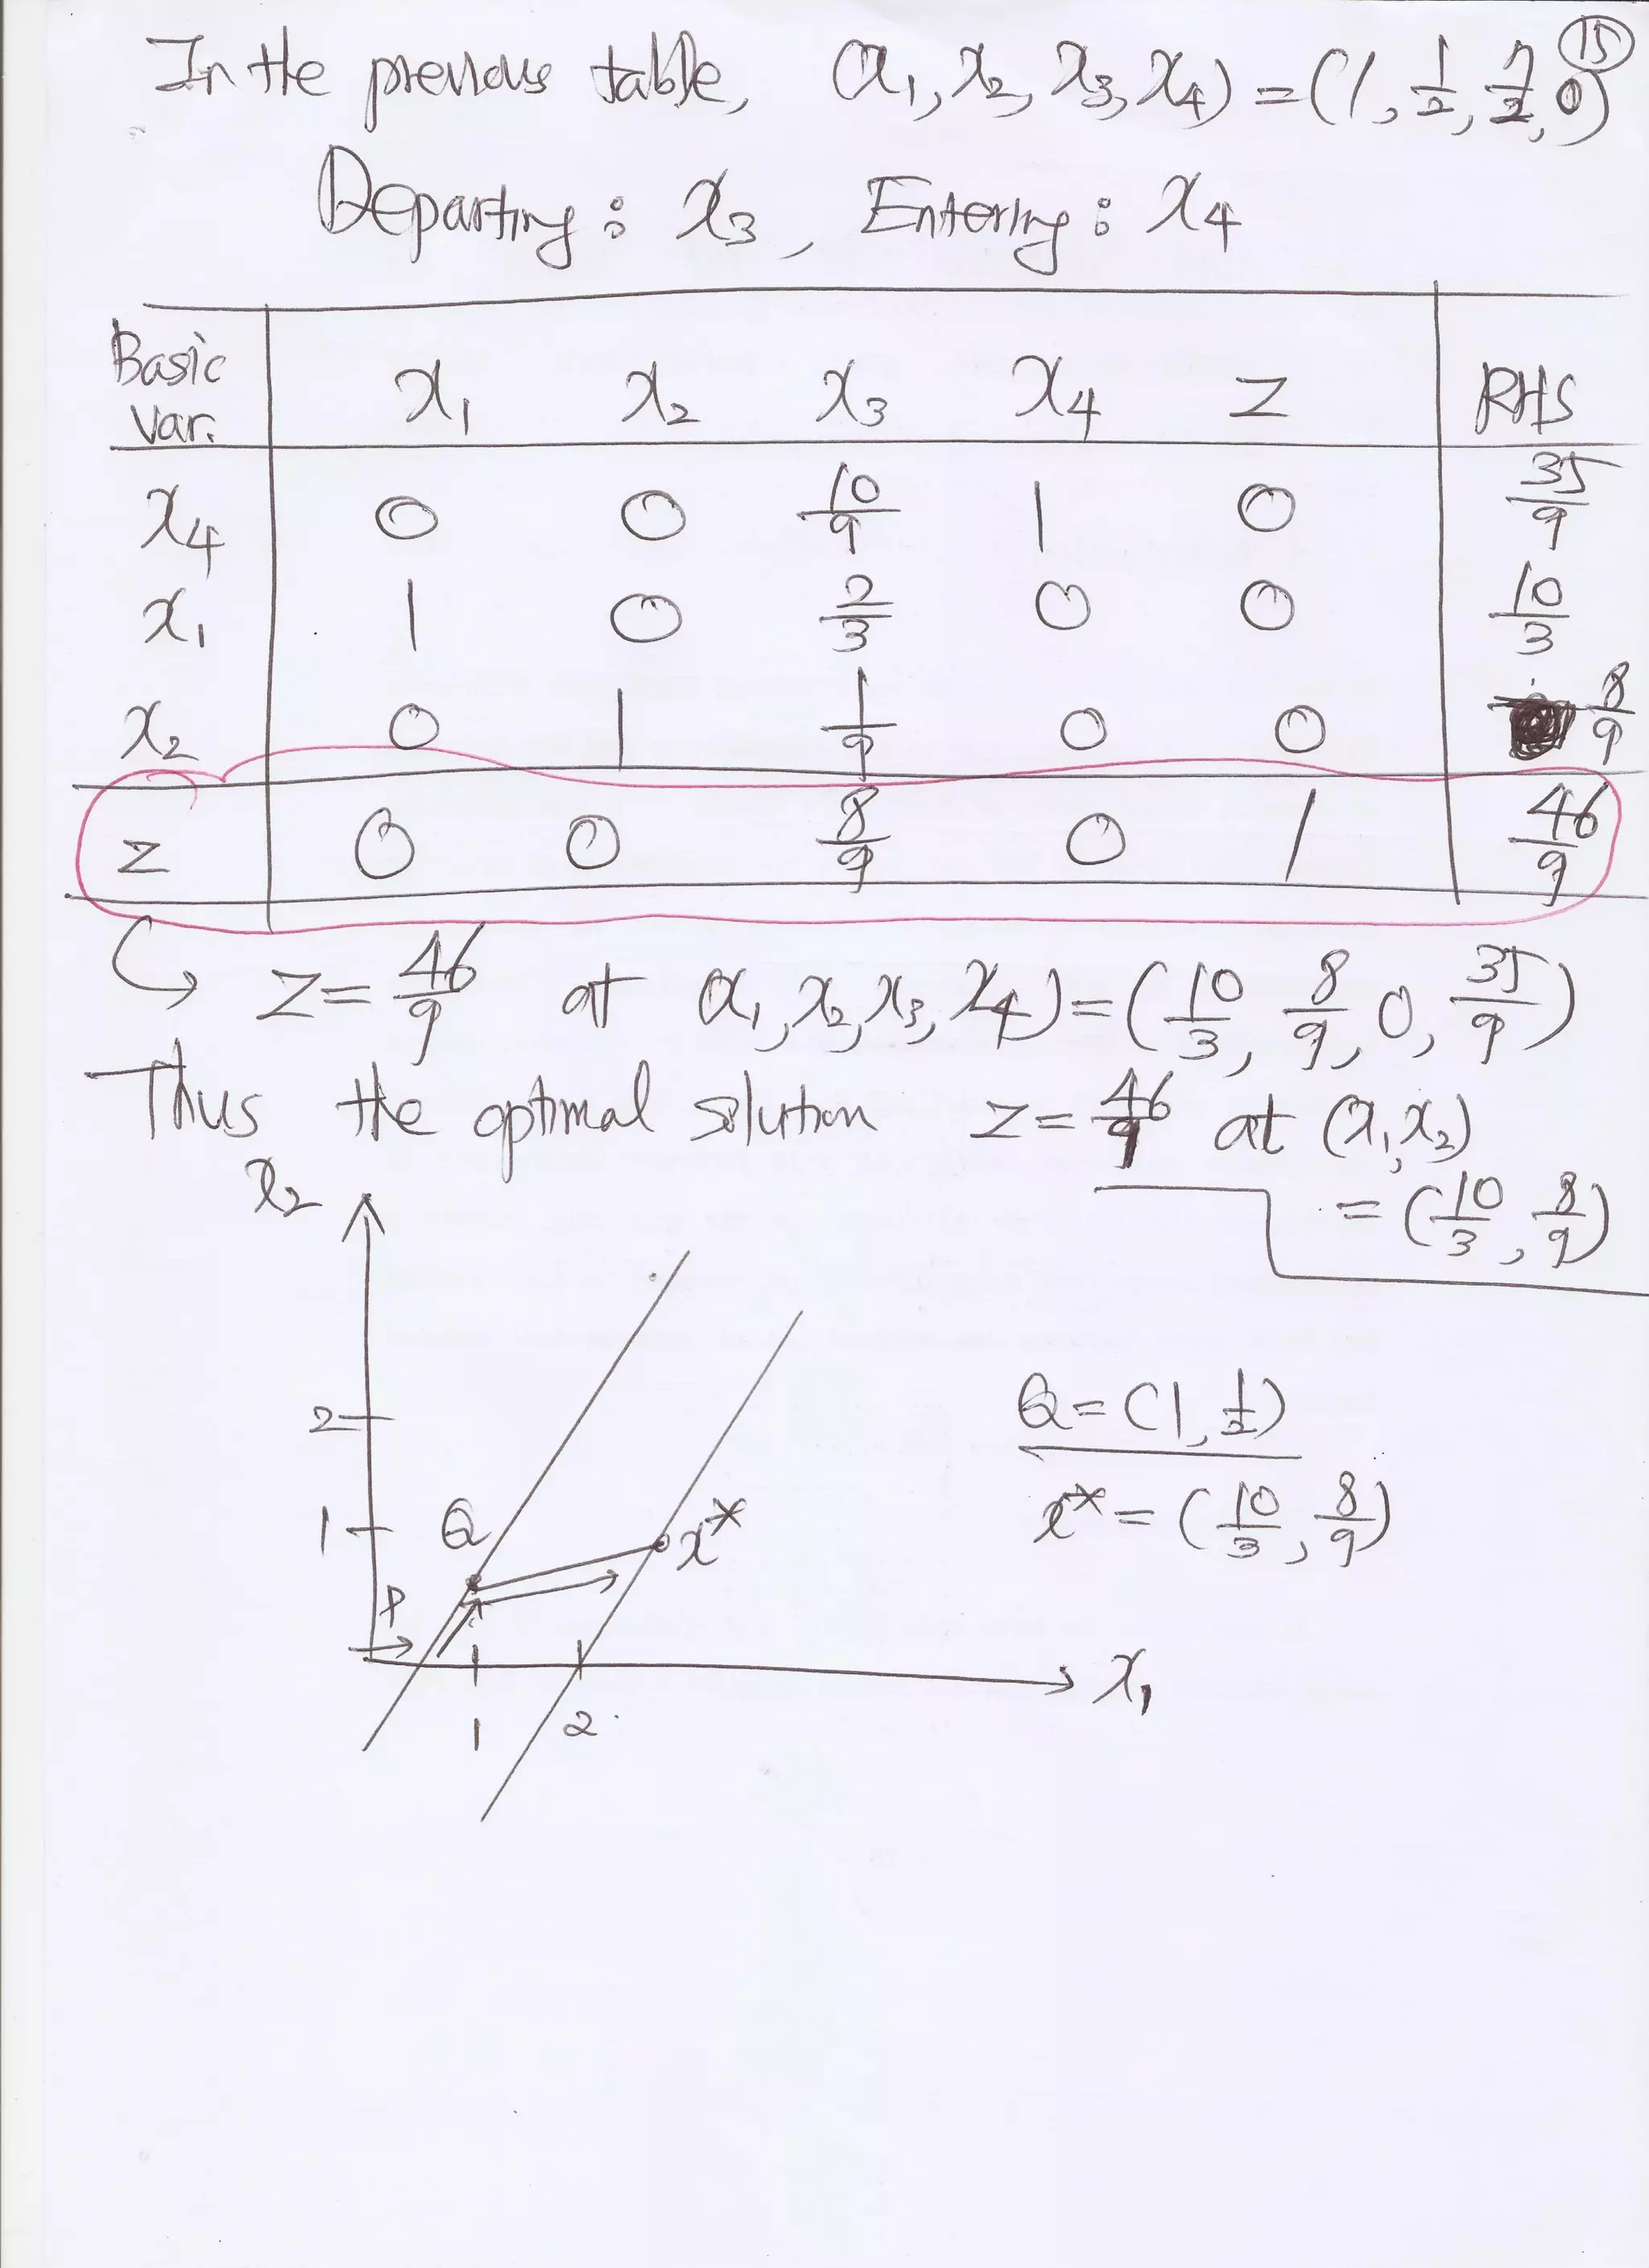 15
In the previous table, (x₁, x₂, x₃, x₄) = (1, 1/2, 7/2, 0)
Departing : x₃ , Entering : x₄
Basic Var. x₁ x₂ x₃ x₄ z RHS
x₄ 0 0 10/9 1 0 35/9
x₁ 1 0 2/3 0 0 10/3
x₂ 0 1 1/9 0 0 8/9
z 0 0 8/9 0 1 46/9
↪ z = 46/9 at (x₁, x₂, x₃, x₄) = (10/3, 8/9, 0, 35/9)
Thus the optimal solution z = 46/9 at (x₁, x₂)
= (10/3, 8/9)
x₂
2
Q = (1, 1/2)
1 Q x*
x* = (10/3, 8/9)
P
x₁
1 2